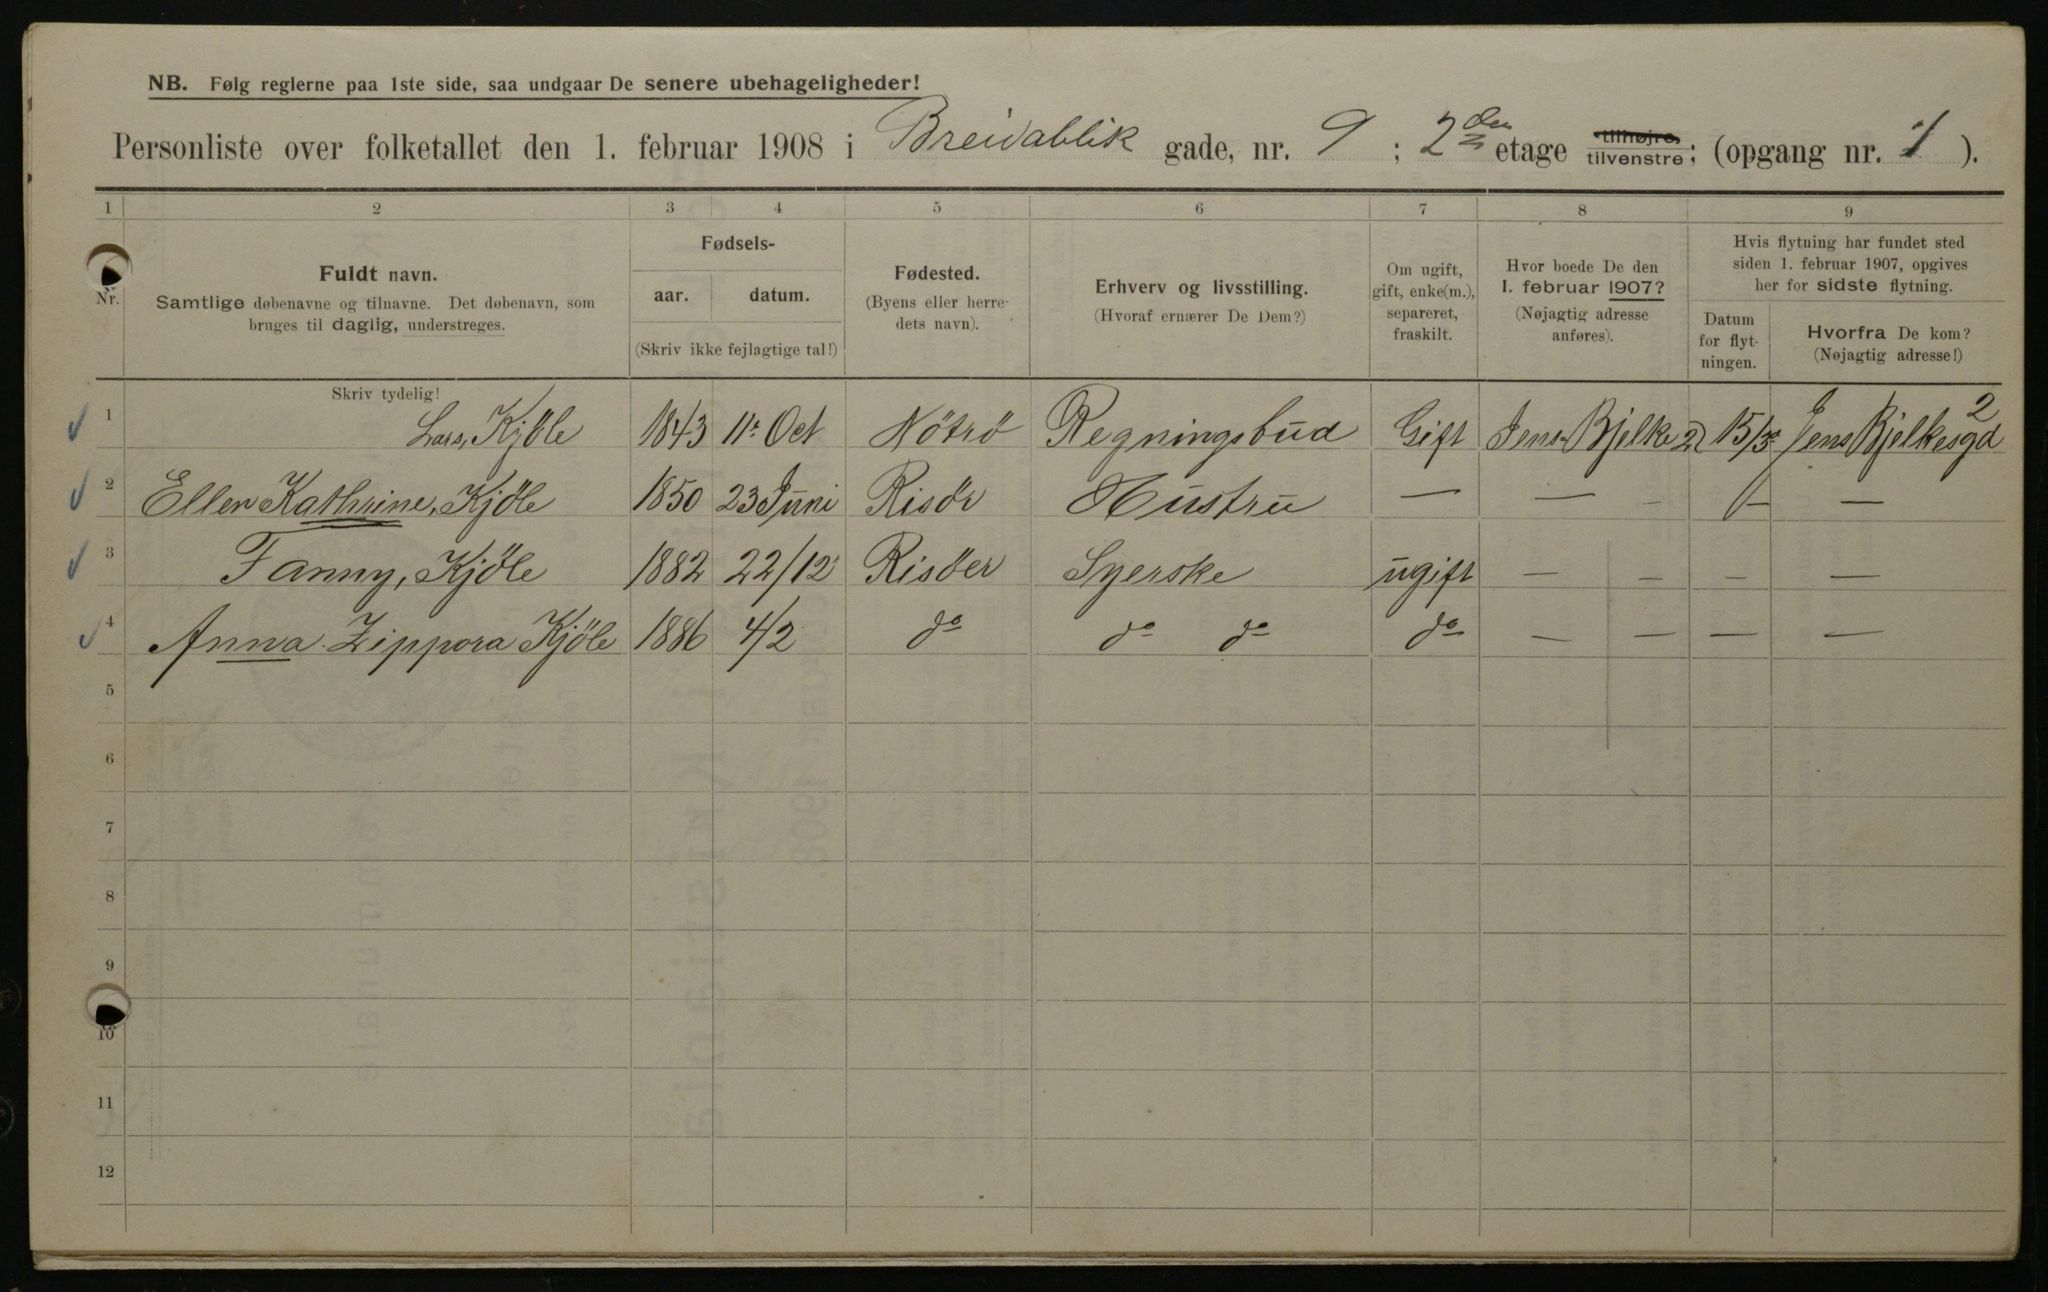 NB. Følg reglerne paa 1ste side, saa undgaar De senere ubehageligheder!
Personliste over folketallet den 1. februar 1908 i Breidablik gade, nr. 9 ; 2den etage tilhøjre, tilvenstre; (opgang nr. 1 ).
1 2 3 4 5 6 7 8 9
Nr.
Fuldt navn.
Samtlige døbenavne og tilnavne. Det døbenavn, som
bruges til daglig, understreges.
Fødsels-
aar. datum.
(Skriv ikke fejlagtige tal!)
Fødested.
(Byens eller herre-
dets navn).
Erhverv og livsstilling.
(Hvoraf ernærer De Dem?)
Om ugift,
gift, enke(m.),
separeret,
fraskilt.
Hvor boede De den
1. februar 1907?
(Nøjagtig adresse
anføres).
Hvis flytning har fundet sted
siden 1. februar 1907, opgives
her for sidste flytning.
Datum
for flyt-
ningen.
Hvorfra De kom?
(Nøjagtig adresse!)
Skriv tydelig!
1 Lars, Kjöle 1843 11' Oct Nötrö Regningsbud Gift Jens Bjelke 2 15/3 Jens Bjelkesgd 2
2 Ellen Kathrine, Kjöle 1850 23 Juni Risör Hustru — — - — —
3 Fanny, Kjöle 1882 22/12 Risöer Syerske ugift — — — —
4 Anna Zippora Kjöle 1886 4/2 do do do do — — — —
5
6
7
8
9
10
11
12